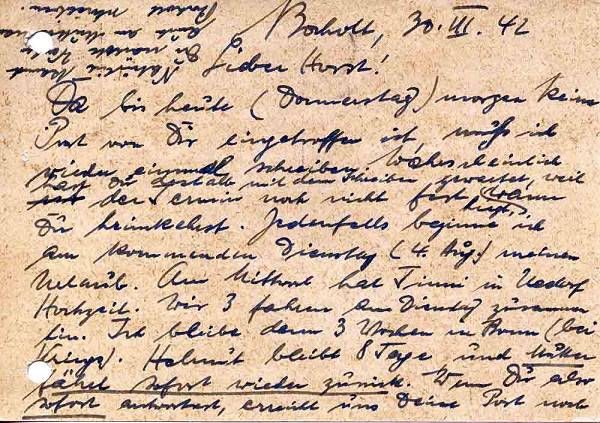 Bocholt, 30. VII. 42
Lieber Horst!
Da bis heute (Donnerstag) morgen keine
Post von Dir eingetroffen ist, muß ich
wieder einmal schreiben. Wahrscheinlich
hast Du deshalb mit dem Schreiben gewartet, weil
der Termin noch nicht fest liegt, wann
Du
Jedenfalls beginne ich
am kommenden Dienstag (4. Aug.) meinen
Urlaub. Am Mittwoch hat Tinni in
Hochzeit. Wir 3 fahren am Dienstag zusammen
hin. Ich bleibe dann 3 Wochen in Bonn (bei
Helmut bleibt 8 Tage und Mutter
fährt sofort wieder zurück. Wenn Du also
sofort antwortest, erreicht uns Deine Post noch
Natürlich kannst
Du
auch an Mutter
Bocholt schreiben.